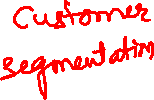 Customer
segmentation